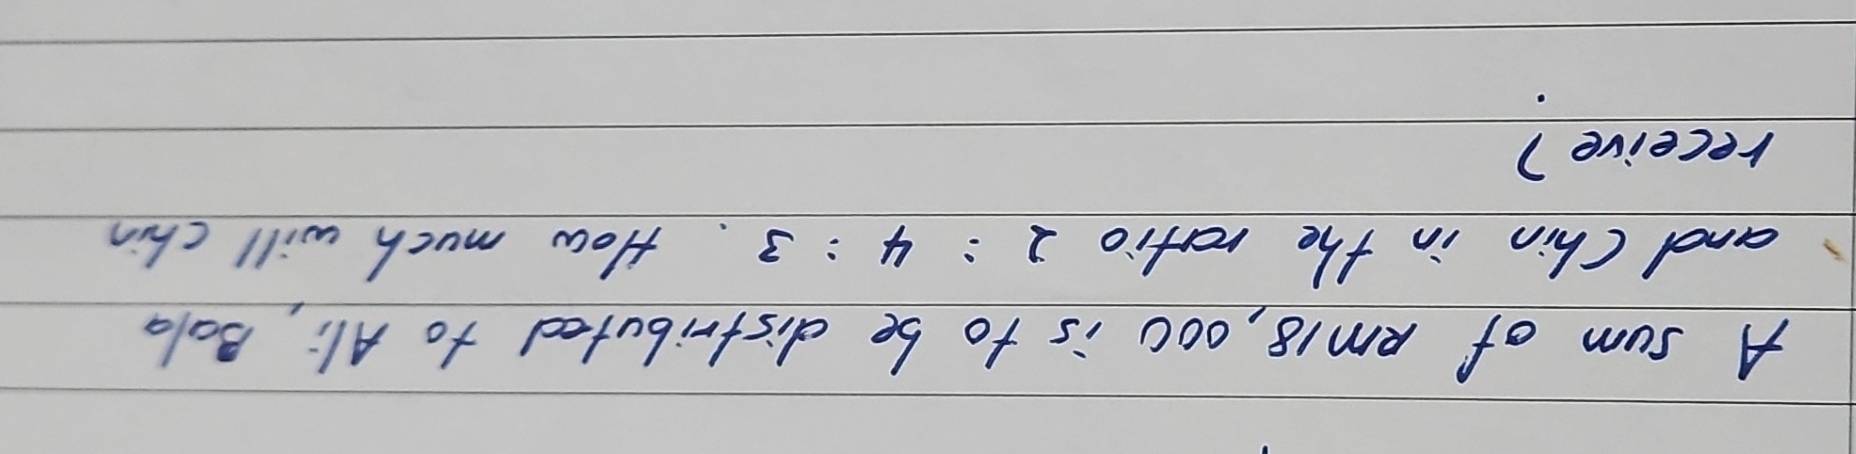 A sum of RM18,000 is to be distributed to Ali, Bala
and Chin in the ratio 2 : 4 : 3. How much will Chin
receive?